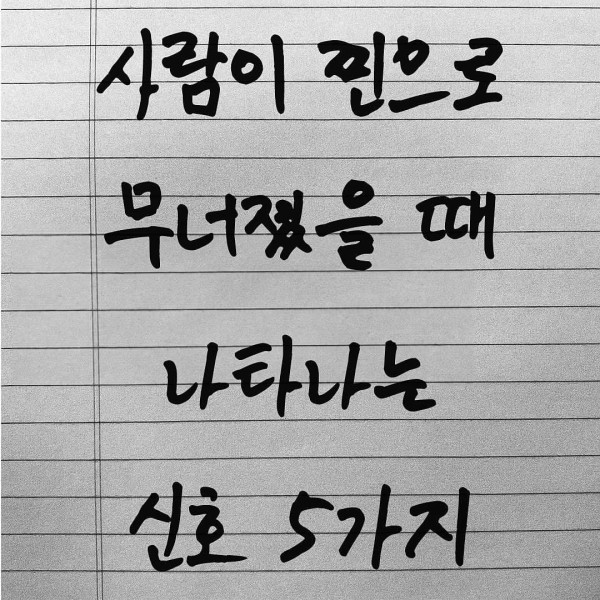 사람이 찐으로
무너졌을 때
나타나는
신호 5가지